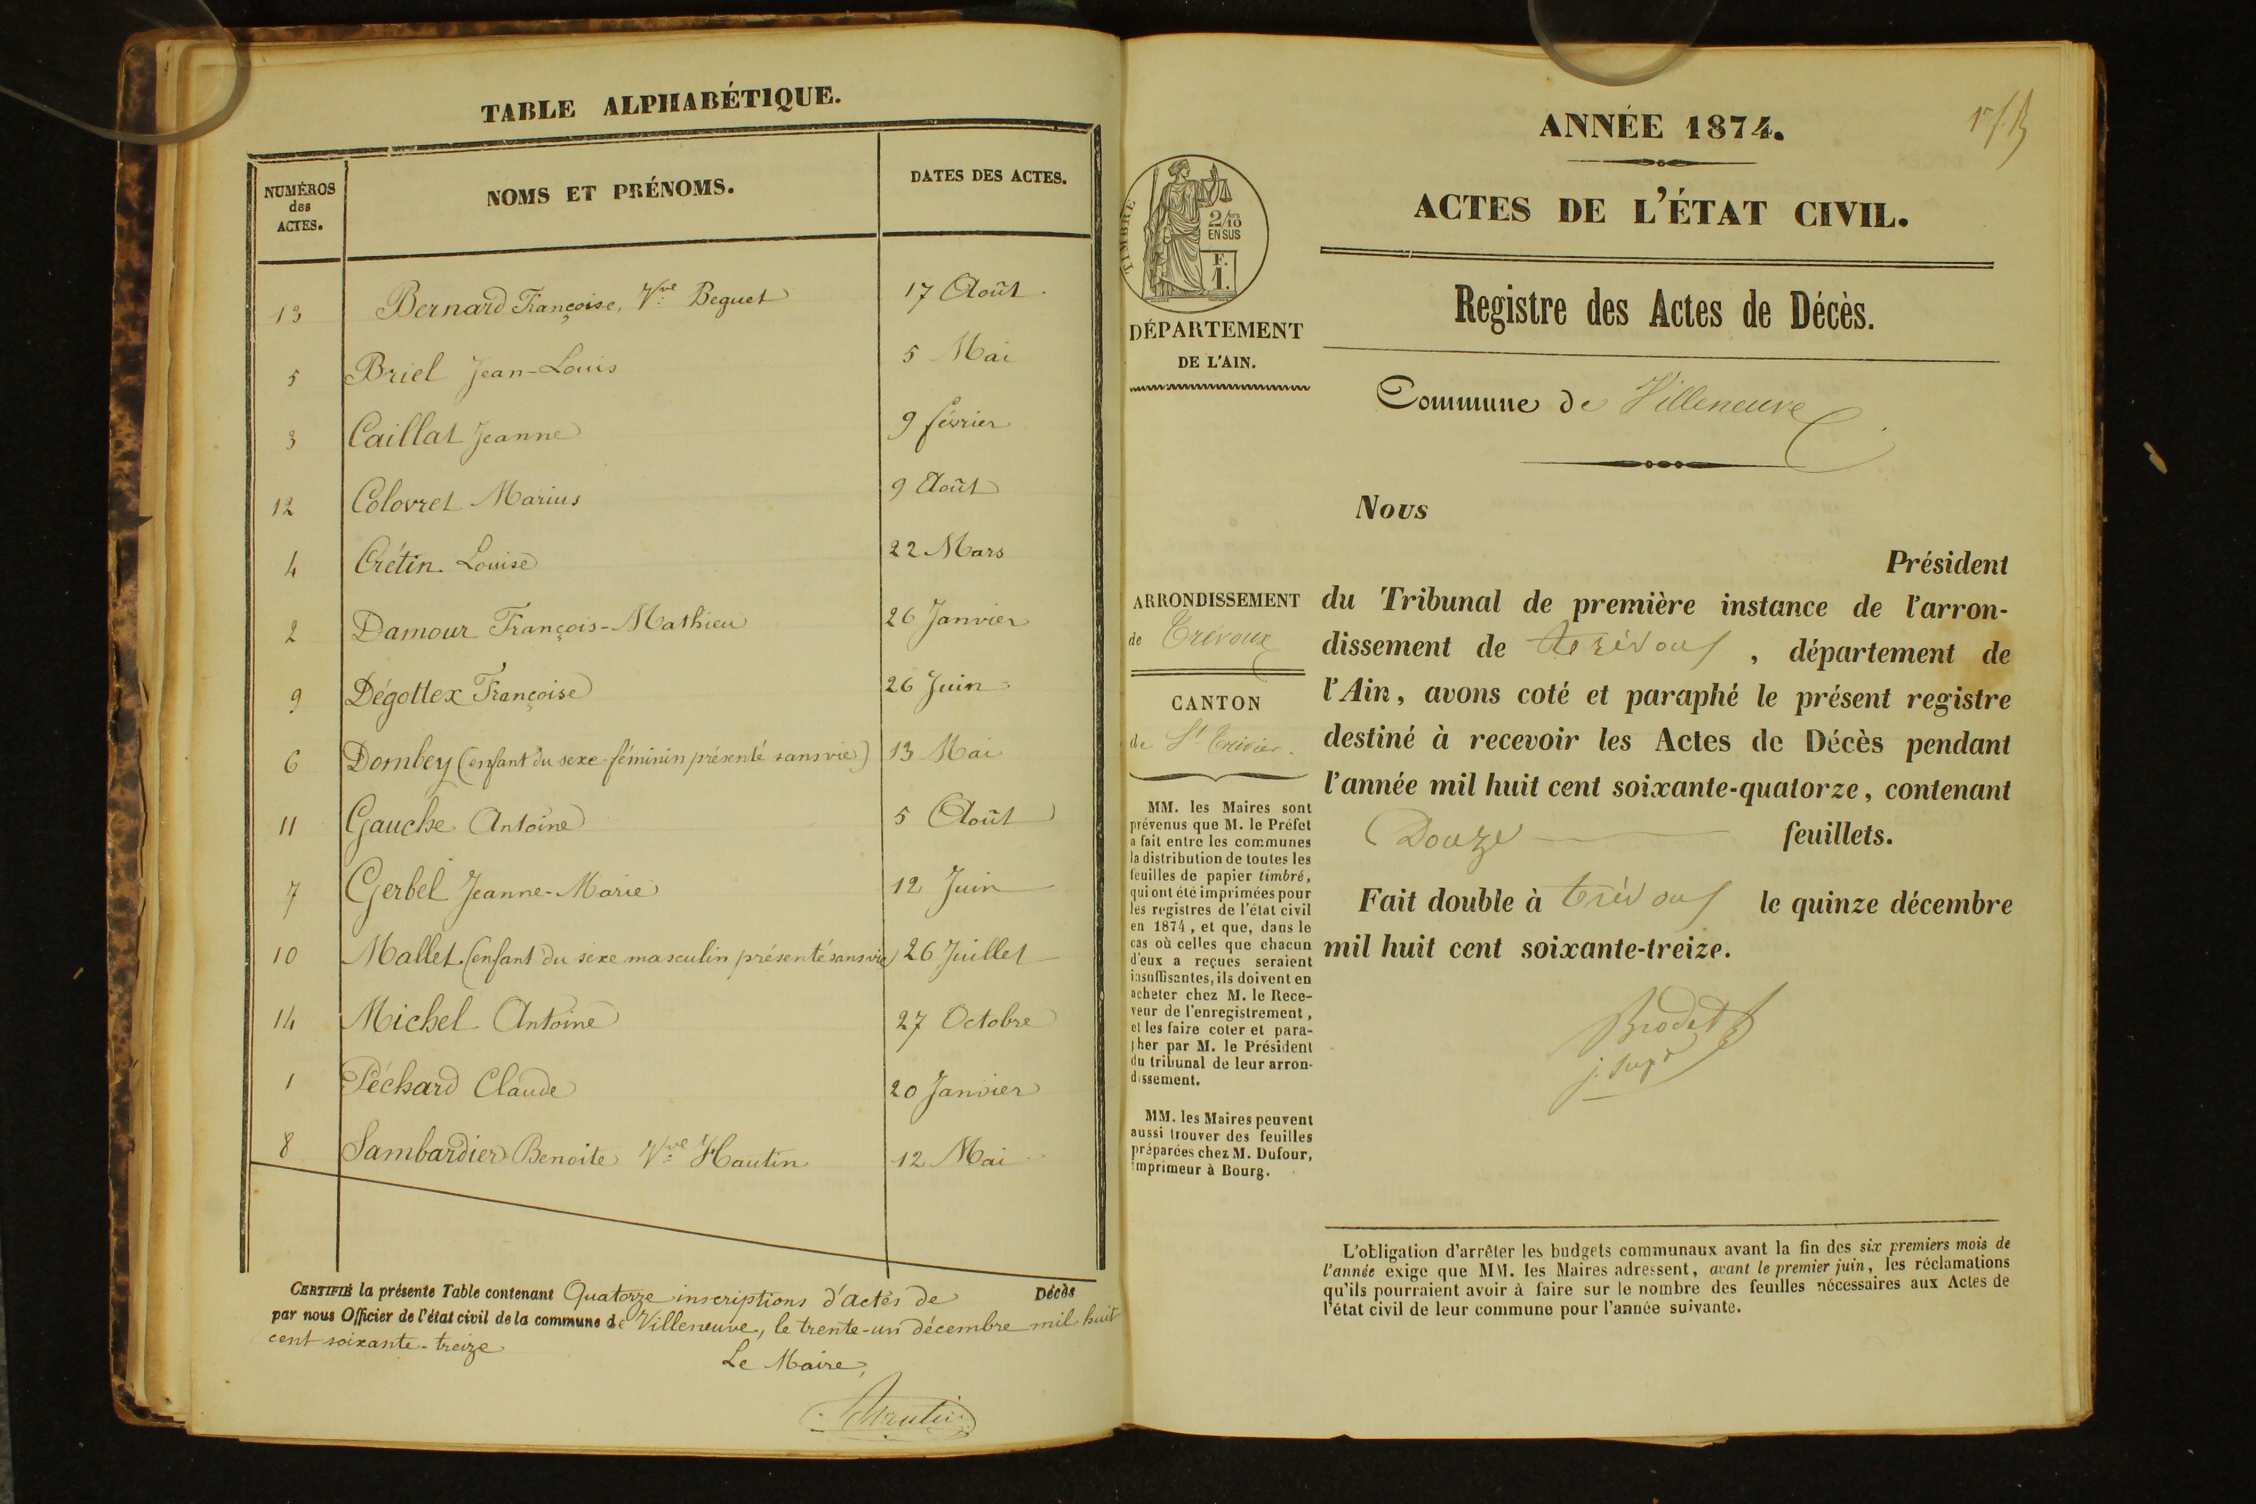 TABLE ALPHABÉTIQUE.
NUMÉROS
des
ACTES.
NOMS ET PRÉNOMS.
DATES DES ACTES.
13 Bernard Françoise, Vve Beguet 17 Août
5 Briel Jean-Louis 5 Mai
3 Caillat Jeanne 9 février
12 Colovret Marius 9 Août
4 Crétin Louise 22 Mars
2 Damour François-Mathieu 26 Janvier
9 Dégottex Françoise 26 Juin
6 Dombey (enfant du sexe féminin présenté sans vie) 13 Mai
11 Gauche Antoine 5 Août
7 Gerbel Jeanne-Marie 12 Juin
10 Mallet (enfant du sexe masculin présenté sans vie) 26 Juillet
14 Michel Antoine 27 Octobre
1 Péchard Claude 20 Janvier
8 Sambardier Benoite Vve Hautin 12 Mai
CERTIFIÉ la présente Table contenant Quatorze inscriptions d'actes de Décès
par nous Officier de l'état civil de la commune de Villeneuve, le trente-un décembre mil huit
cent soixante-treize
Le Maire,
ANNÉE 1874.
ACTES DE L'ÉTAT CIVIL.
TIMBRE
2/10
EN SUS
F.
1.
DÉPARTEMENT
DE L'AIN.
Registre des Actes de Décès.
Commune de Villeneuve
ARRONDISSEMENT
de Trévoux
CANTON
de St Trivier
MM. les Maires sont
prévenus que M. le Préfet
a fait entre les communes
la distribution de toutes les
feuilles de papier timbré,
qui ont été imprimées pour
les registres de l'état civil
en 1874, et que, dans le
cas où celles que chacun
d'eux a reçues seraient
insuffisantes, ils doivent en
acheter chez M. le Rece-
veur de l'enregistrement,
et les faire coter et para-
pher par M. le Président
du tribunal de leur arron-
dissement.
MM. les Maires peuvent
aussi trouver des feuilles
préparées chez M. Dufour,
imprimeur à Bourg.
Nous
Président
du Tribunal de première instance de l'arron-
dissement de trévoux, département de
l'Ain, avons coté et paraphé le présent registre
destiné à recevoir les Actes de Décès pendant
l'année mil huit cent soixante-quatorze, contenant
Douze feuillets.
Fait double à trévoux le quinze décembre
mil huit cent soixante-treize.
Brodet
j. sup
L'obligation d'arrêter les budgets communaux avant la fin des six premiers mois de
l'année exige que MM. les Maires adressent, avant le premier juin, les réclamations
qu'ils pourraient avoir à faire sur le nombre des feuilles nécessaires aux Actes de
l'état civil de leur commune pour l'année suivante.